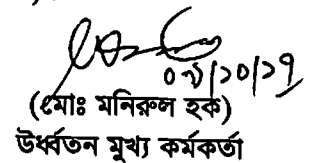 ০৯/১০/১৭
(মোঃ মনিরুল হক)
উর্ধ্বতন মুখ্য কর্মকর্তা